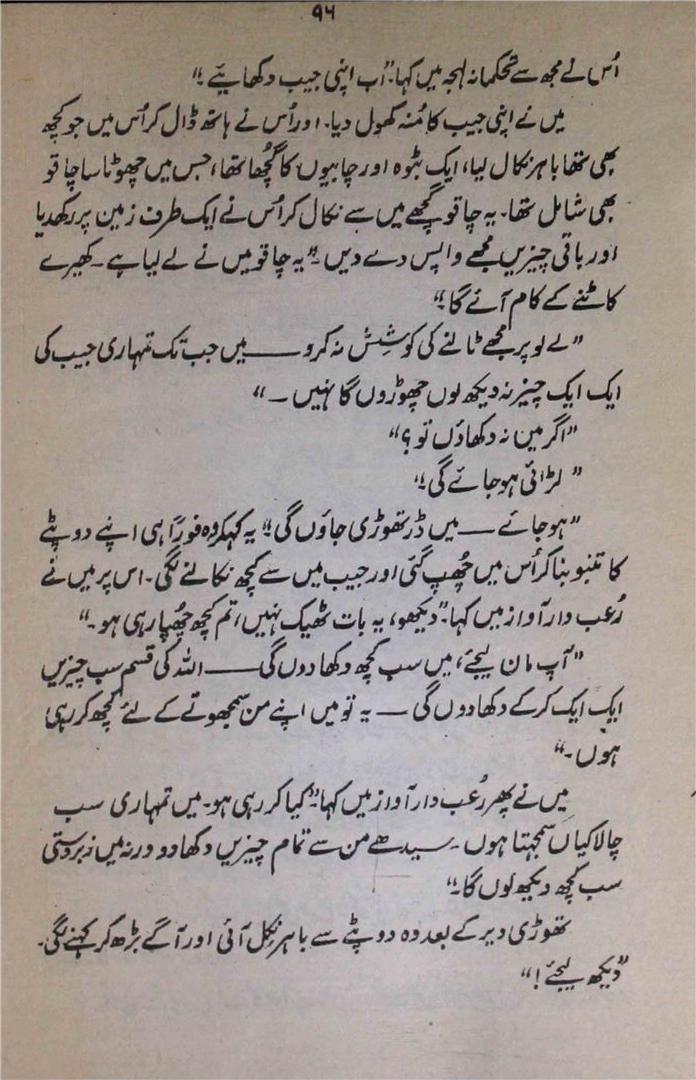 ۹۶
اُس نے مجھ سے تحکمانہ لہجہ میں کہا۔ "اب اپنی جیب دکھایئے۔"
میں نے اپنی جیب کا مُنہ کھول دیا۔ اور اُس نے ہاتھ ڈال کر اُس میں جو کچھ
بھی تھا باہر نکال لیا، ایک بٹوہ اور چابیوں کا گُچھا تھا، جس میں چھوٹا سا چاقو
بھی شامل تھا۔ یہ چاقو گچھے میں سے نکال کر اُس نے ایک طرف زمین پر رکھ دیا
اور باقی چیزیں مجھے واپس دے دیں۔ "یہ چاقو میں نے لے لیا ہے۔ کھیرے
کاٹنے کے کام آئے گا؛"
"لے لو پر مجھے ٹالنے کی کوشِش نہ کرو ــــ میں جب تک تمہاری جیب کی
ایک ایک چیز نہ دیکھ لوں چھوڑوں گا نہیں ـ"
"اگر میں نہ دکھاؤں تو؟"
"لڑائی ہو جائے گی؛"
"ہو جائے ــــ میں ڈر تھوڑی جاؤں گی؛" یہ کہکر وہ فوراً ہی اپنے دوپٹے
کا تنبو بنا کر اُس میں چُھپ گئی اور جیب میں سے کچھ نکالنے لگی۔ اس پر میں نے
رُعب دار آواز میں کہا۔ "دیکھو، یہ بات ٹھیک نہیں، تم کچھ چُھپا رہی ہو۔"
"آپ مان لیجئے، میں سب کچھ دکھا دوں گی ــــ اللہ کی قسم سب چیزیں
ایک ایک کرکے دکھا دوں گی ــ یہ تو میں اپنے من سمجھوتے کے لئے کچھ کر رہی
ہوں۔"
میں نے پھر رُعب دار آواز میں کہا۔ "کیا کر رہی ہو۔ میں تمہاری سب
چالاکیاں سمجہتا ہوں۔ سیدھے من سے تمام چیزیں دکھا دو ورنہ میں زبردستی
سب کچھ دیکھ لوں گا۔"
تھوڑی دیر کے بعد وہ دوپٹے سے باہر نِکل آئی اور آگے بڑھ کر کہنے لگی۔
"دیکھ لیجئے!"